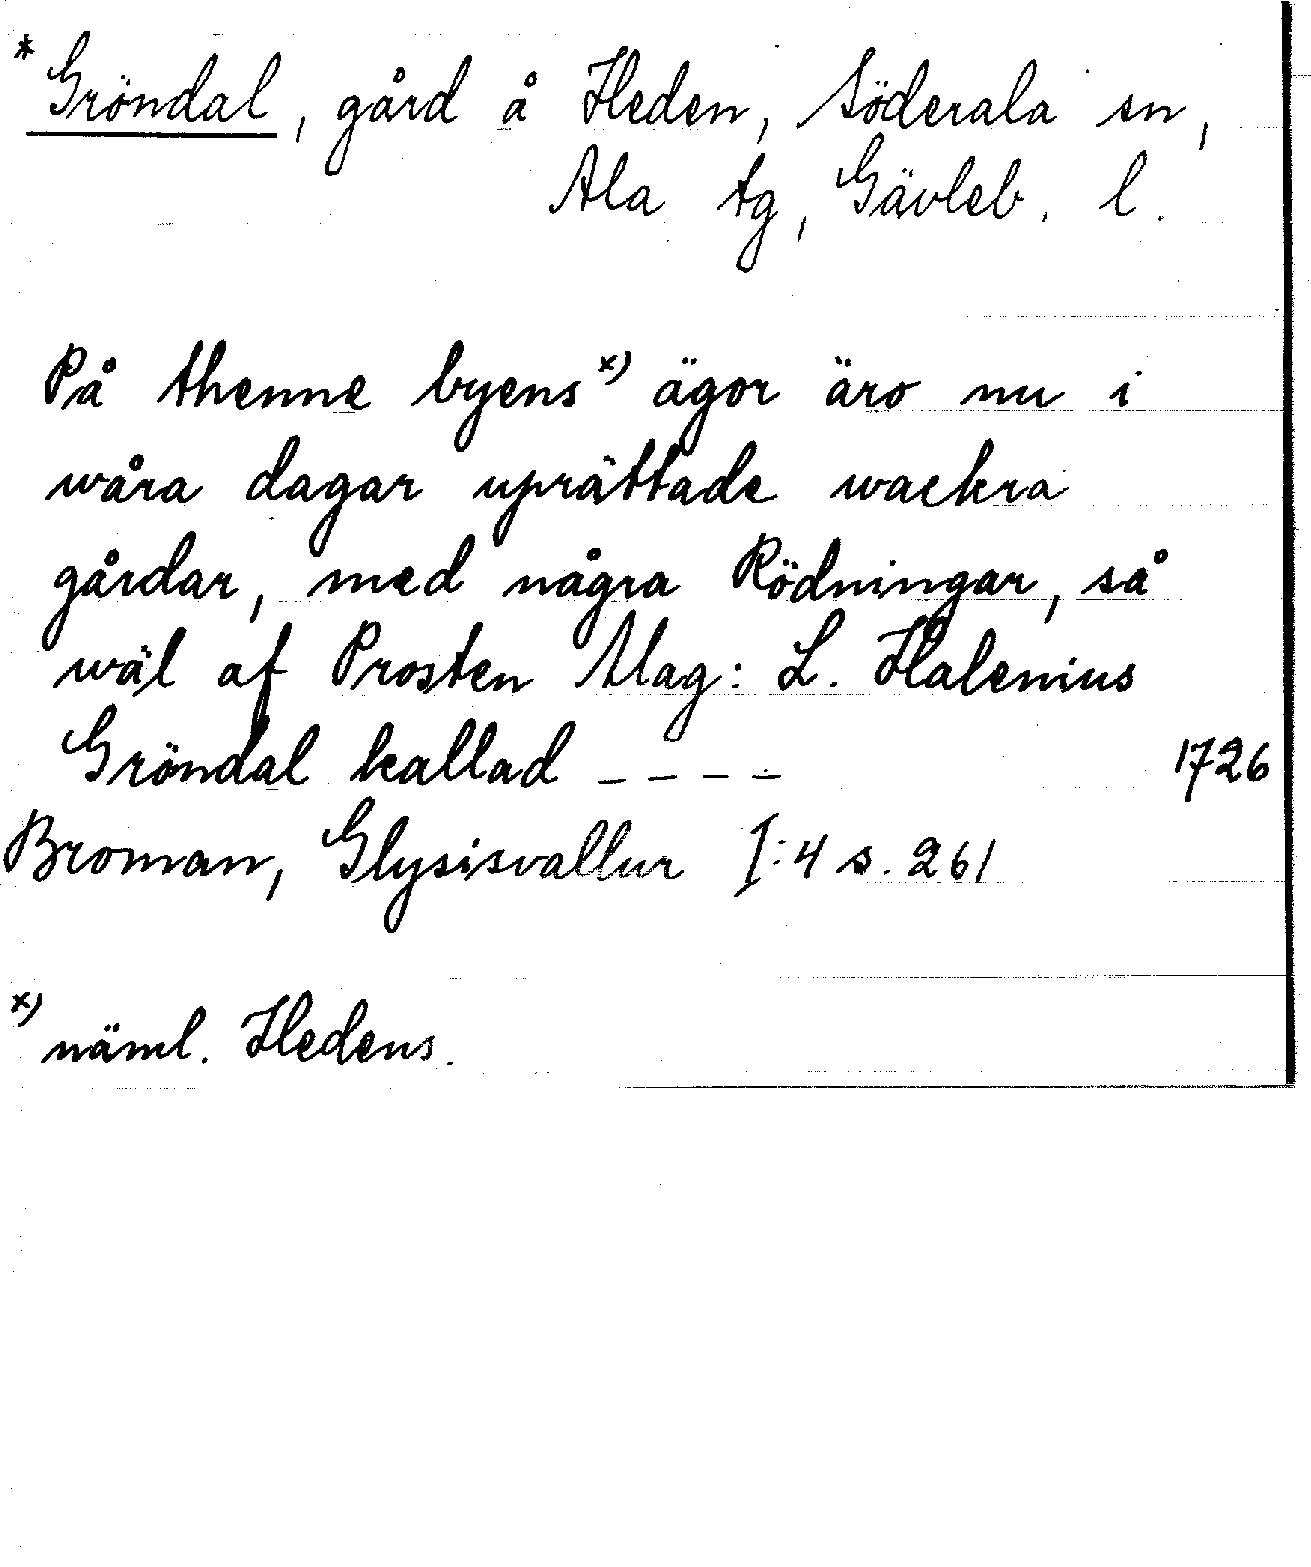 * Gröndal, gård å Heden, Söderala sn,
Ala tg, Gävleb. l.
På thenne byens x) ägor äro nu i
wåra dagar uprättade wackra
gårdar, med några Rödningar, så
wäl af Prosten Mag: L. Halenius
Gröndal kallad _ _ _ _ 1726
Broman, Glysisvallur I:4 s. 261
x) näml. Hedens.